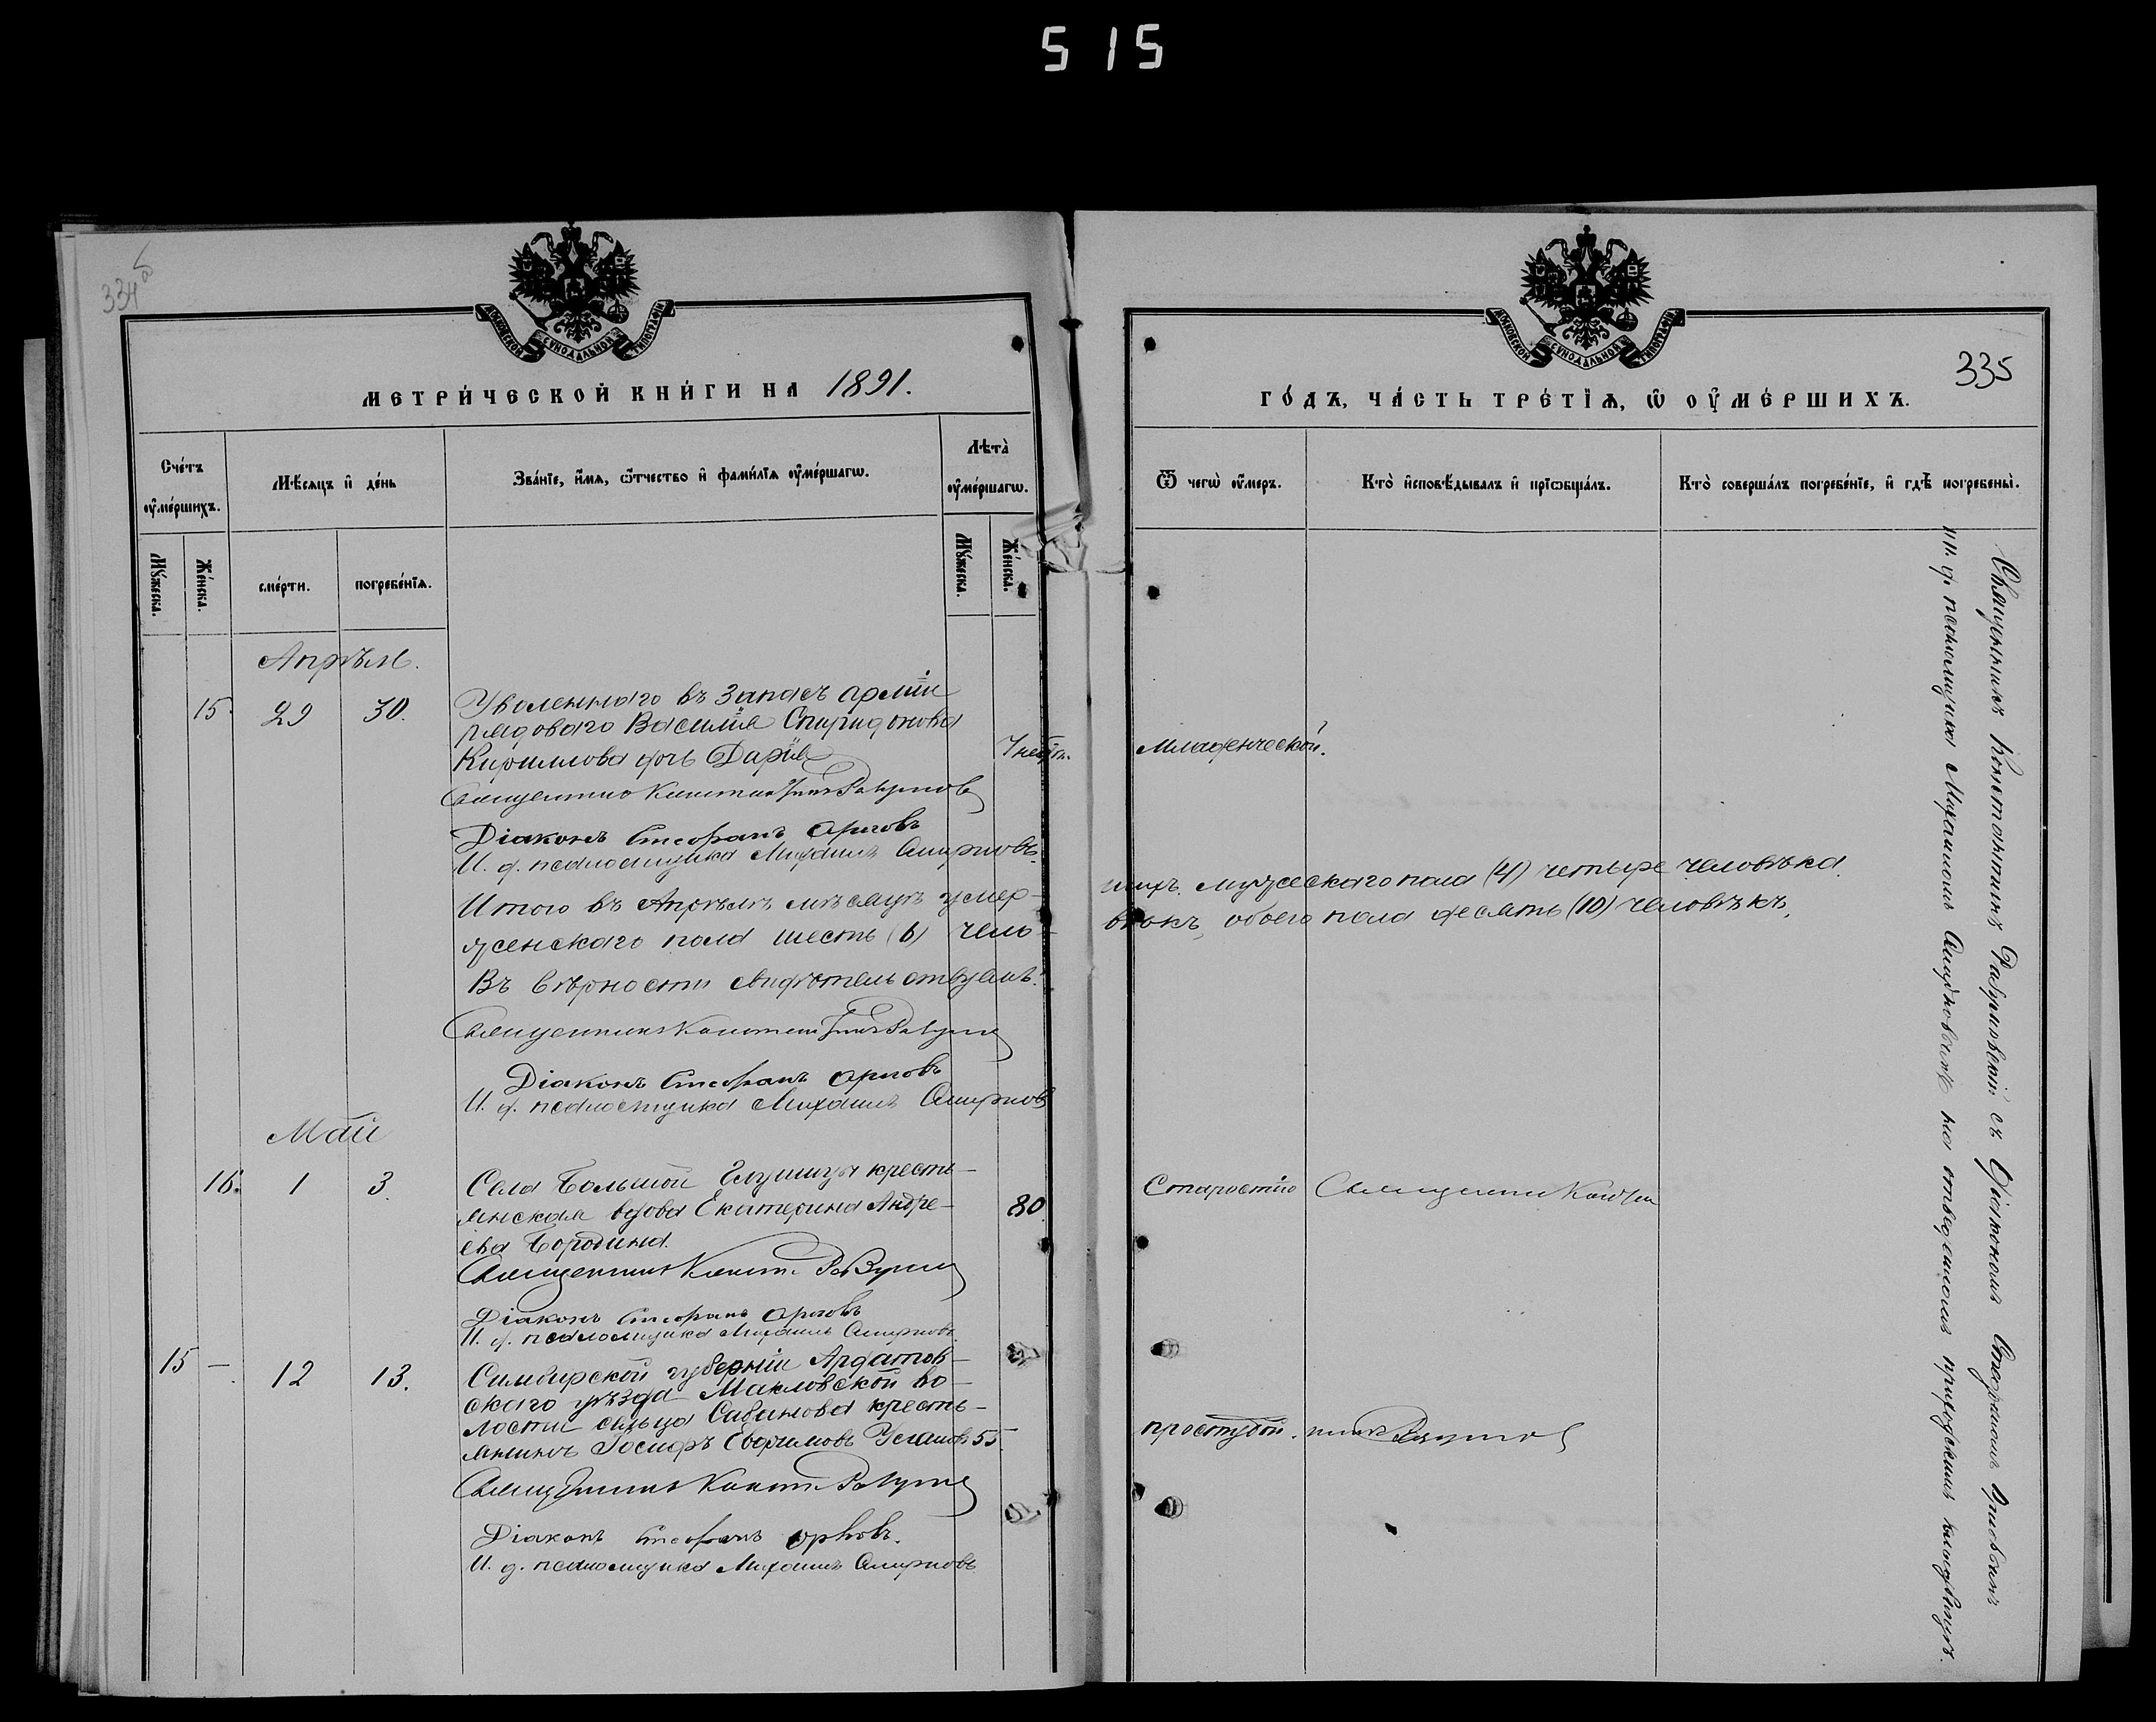 515
334 об
МОСКОВСКОЙ СѴНОДАЛЬНОЙ ТИПОГРАФІИ
МЕТРИ́ЧЕСКОЙ КНИ́ГИ НА 1891.
Сче́тъ ᲂу҆ме́ршихъ.
Мѣ́сяцъ и҆ де́нь
Зва́нїе, и҆́мѧ, ѻ҆́тчество и҆ фами́лїѧ ᲂу҆ме́ршагѡ.
Лѣ́та ᲂу҆ме́ршагѡ.
Мꙋ́жеска.
Же́нска.
сме́рти.
погребе́нїѧ.
Мꙋ́жеска.
Же́нска.
Апрѣль.
15. 29 30. Уволеннаго въ запасъ арміи
рядоваго Василія Спиридонова
Кириллова дочь Дарія
7 нед.
Священникъ Константинъ
Діаконъ Стефанъ Орловъ
И. д. псаломщика Михаилъ Смирновъ.
Итого въ Апрѣлѣ мѣсяцѣ умер-
женскаго пола шесть (6) чело-
Въ вѣрности свидѣтельствуемъ:
Священникъ Константинъ
Діаконъ Стефанъ Орловъ
И. д. псаломщика Михаилъ Смирновъ
Май
16. 1 3. Села Большой Глушицы кресть-
янская вдова Екатерина Андре-
80
ева Бородина.
Священникъ Конст.
Діаконъ Стефанъ Орловъ
И. д. псаломщика Михаилъ Смирновъ.
15 — 12 13. Симбирской губерніи Ардатов-
скаго уѣзда Макловской во-
лости сельца Сабанова кресть-
янинъ Іосифъ Евдокимовъ 55.
Священникъ Конст.
Діаконъ Стефанъ Орловъ.
И. д. псаломщика Михаилъ Смирновъ
МОСКОВСКОЙ СѴНОДАЛЬНОЙ ТИПОГРАФІИ
335
ГО́ДЪ, ЧА́СТЬ ТРЕ́ТЇѦ, Ѡ҆ ОУ҆МЕ́РШИХЪ.
Ѿ чегѡ̀ ᲂу҆́меръ.
Кто̀ и҆сповѣ́дывалъ и҆ прїѡбща́лъ.
Кто̀ соверша́лъ погребе́нїе, и҆ гдѣ̀ погребены̀.
Младенческой.
шихъ: мужескаго пола (4) четыре человѣка.
вѣкъ, обоего пола десять (10) человѣкъ.
Старостію Священникъ Констан
простудой. тинъ
Священникъ Константинъ съ Діакономъ Стефаномъ Орловымъ
И. д. псаломщика Михаиломъ Смирновымъ на отведенномъ приходскомъ кладбищѣ.